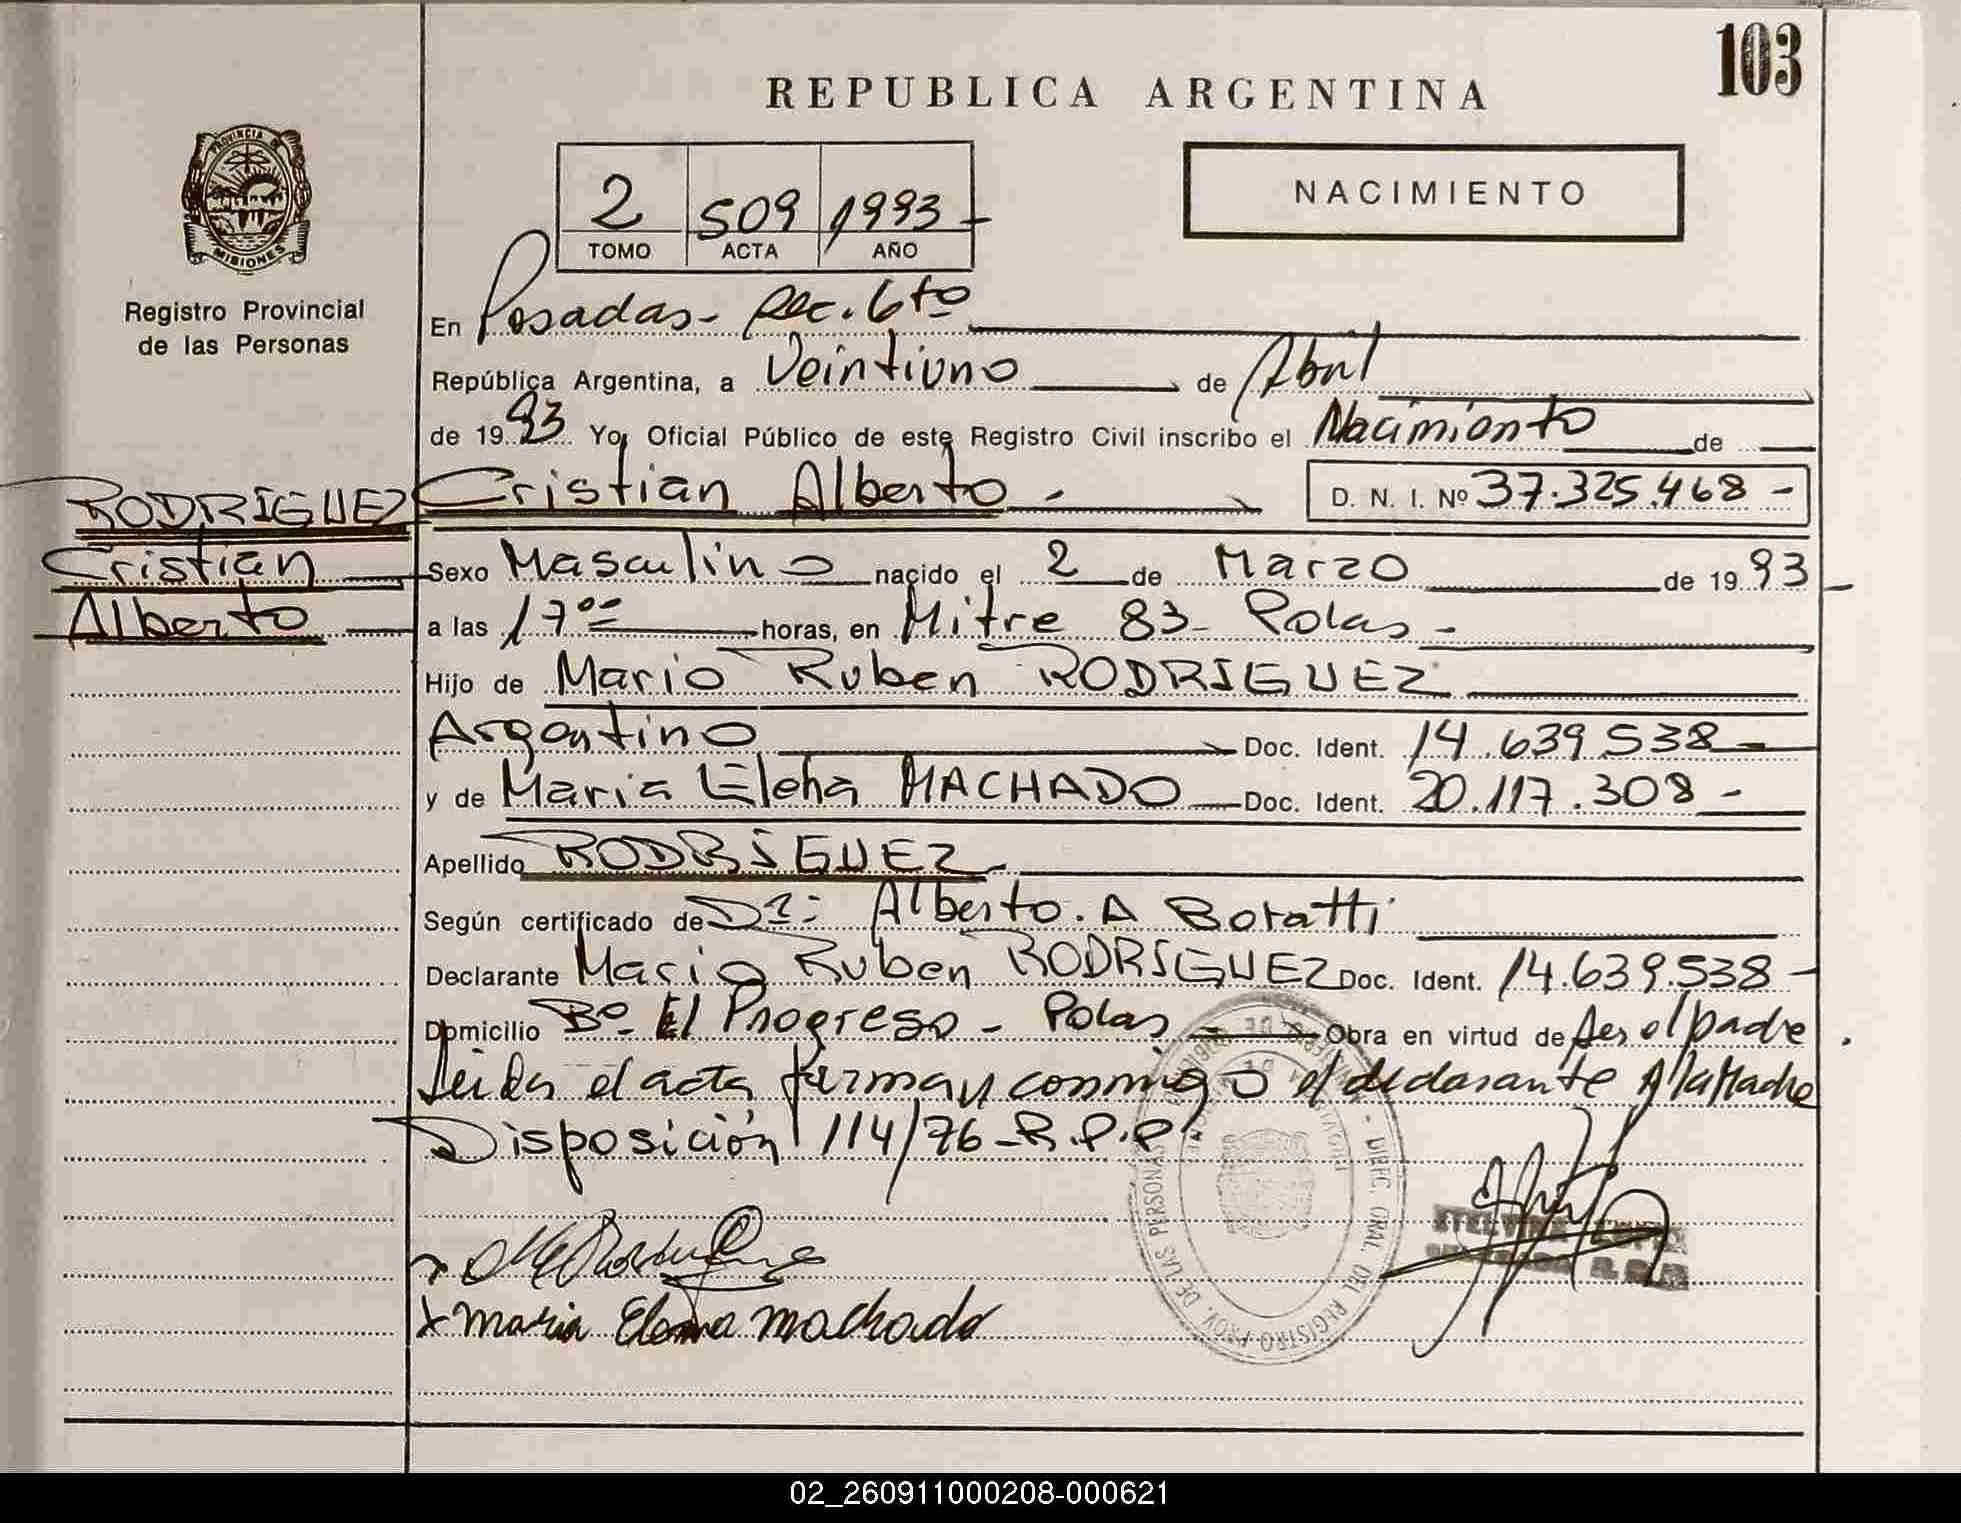 103
REPUBLICA ARGENTINA
PROVINCIA DE
MISIONES
NACIMIENTO
2 509 1993-
TOMO ACTA AÑO
Registro Provincial
de las Personas
En Posadas- Sec. 6to
República Argentina, a Veintiuno de Abril
de 19 93 Yo, Oficial Público de este Registro Civil inscribo el Nacimiento de
RODRIGUEZ Cristian Alberto - D. N. I. Nº 37.325.468 -
Cristian
Alberto
Sexo Masculino nacido el 2 de Marzo de 19 93
a las 17 horas, en Mitre 83- Pdas -
Hijo de Mario Ruben RODRIGUEZ
Argentino Doc. Ident. 14.639.538
y de Maria Elena MACHADO Doc. Ident. 20.117.308 -
Apellido RODRIGUEZ
Según certificado de Dr: Alberto. A Boratti
Declarante Mario Ruben RODRIGUEZ Doc. Ident. 14.639.538 -
Domicilio Bº El Progreso - Pdas, Obra en virtud de Ser el padre
Leida el acta firman conmigo el declarante y la Madre
Disposición 114/76-R.P.P.
Maria Elena Machado
DIREC. GRAL. DEL REGISTRO PROV. DE LAS PERSONAS
02_260911000208-000621